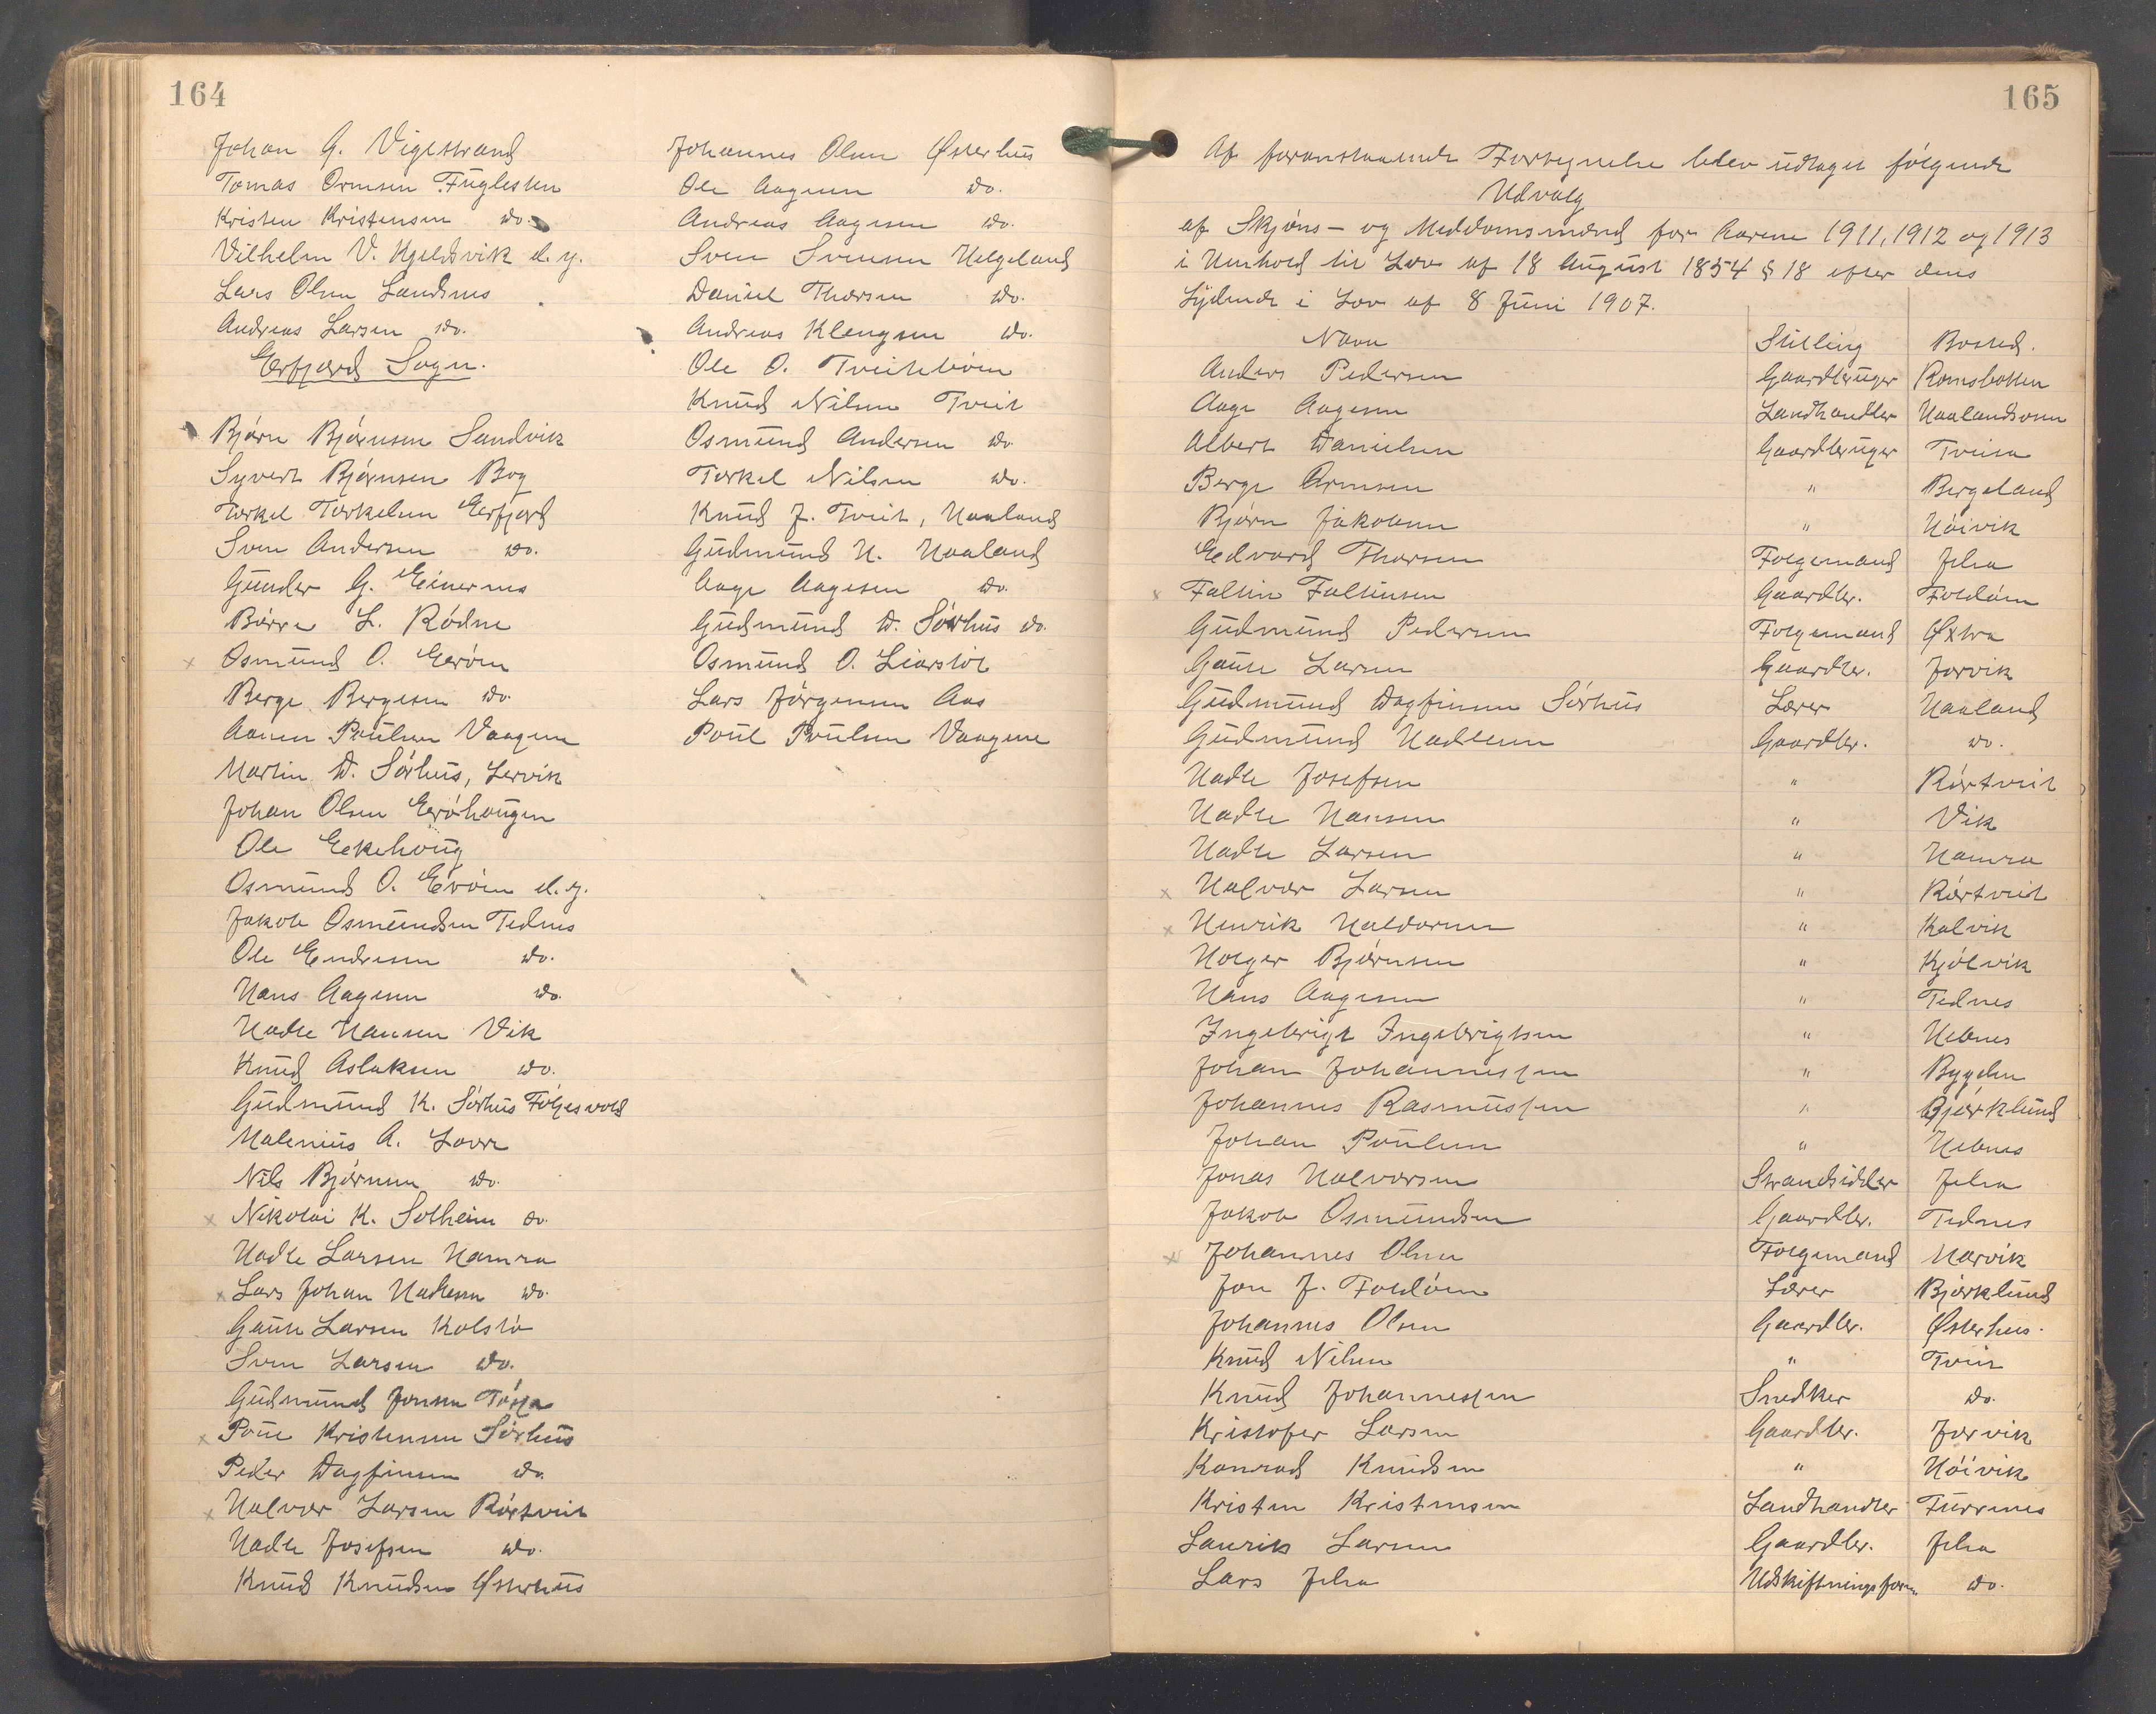 164
Johan G. Vigestrand
Tomas Ormsen Fuglesten
Kristen Kristensen do.
Vilhelm V. Hjeldsvik d. y.
Lars Olsen Landsnes
Andreas Larsen do.
Erfjord Sogn.
Bjørn Bjørnsen Sandvik
Syvert Bjørnsen Bog
Torkel Torkelsen Erfjord
Sven Andersen do.
Gunder G. Einernes
Børre L. Rødne
Osmund O. Erøen
Berge Bergesen do.
Aanen Poulsen Vaagene
Martin D. Sørhus, Lervik
Johan Olsen Erøhaugen
Ole Eekehoug
Osmund O. Erøen d. y.
Jakob Osmundsen Tednes
Ole Endresen do.
Hans Aagesen do.
Hadle Hansen Vik
Knud Aslaksen do.
Gudmund K. Sørhus Følgesvold
Malenius A. Lovra
Nils Bjørnsen do.
Nikolai K. Solheim do.
Hadle Larsen Hamra
Lars Johan Hadlesen do.
Gaute Larsen Kolstø
Sven Larsen do.
Gudmund Jonsen Tøtta
Poul Kristensen Sørhus
Peder Dagfinsen do.
Halvor Larsen Rørtveit
Hadle Josefsen do.
Knud Knudsen Østerhus
Johannes Olsen Østerhus
Ole Aagesen do.
Andreas Aagesen do.
Sven Svensen Helgeland
Daniel Thorsen do.
Andreas Klengsen do.
Ole O. Tveitebøen
Knud Nilsen Tveit
Osmund Andersen do.
Torkel Nilsen do.
Knud J. Tveit, Haaland
Gudmund H. Haaland
Aage Aagesen do.
Gudmund D. Sørhus do.
Osmund O. Liarstøl
Lars Jørgensen Aas
Poul Poulsen Vaagene
165
Af foranstaaende Fortegnelse blev udtaget følgende
Udvalg
af Skjøns- og Meddomsmænd for Aarene 1911, 1912 og 1913
i Henhold til Lov af 18 August 1854 § 18 efter dens
Lydende i Lov af 8 Juni 1907.
Navn Stilling Bosted.
Anders Pedersen Gaardbruger Ramsbotten
Aage Aagesen Landhandler Haalandsosen
Albert Danielsen Gaardbruger Tveita
Berge Ormsen " Bergeland
Bjørn Jakobsen " Høivik
Edvard Thorsen Folgemand Jelsa
Faltin Faltinsen Gaardbr. Foldøen
Gudmund Pedersen Folgemand Øxtra
Gaute Larsen Gaardbr. Jorvik
Gudmund Dagfinsen Sørhus Lærer Haaland
Gudmund Hadlesen Gaardbr. do.
Hadle Josefsen " Rørtveit
Hadle Hansen " Vik
Hadle Larsen " Hamra
Halvor Larsen " Rørtveit
Henrik Haldorsen " Kalvik
Holger Bjørnsen " Kjølvik
Hans Aagesen " Tednes
Ingebrigt Ingebrigtsen " Hebnes
Johan Johannessen " Bygden
Johannes Rasmussen " Bjørklund
Johan Poulsen " Hebnes
Jonas Halvorsen Strandsidder Jelsa
Jakob Osmundsen Gaardbr. Tednes
Johannes Olsen Folgemand Marvik
Jon J. Foldøen Lærer Bjørklund
Johannes Olsen Gaardbr. Østerhus.
Knud Nilsen " Tveit
Knud Johannessen Snedker do.
Kristofer Larsen Gaardbr. Jorvik
Konrad Knudsen " Høivik
Kristen Kristensen Landhandler Furrenes
Laurits Larsen Gaardbr. Jelsa
Lars Jelsa Udskiftningsform. do.